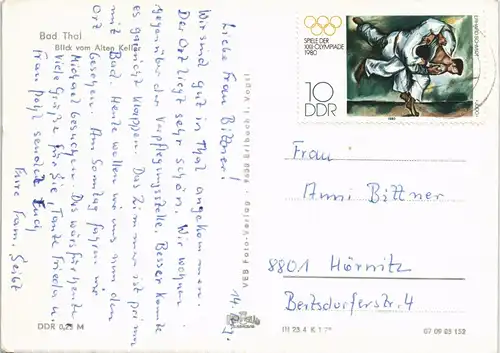 Bad Thal
Blick vom Alten Keller
14.
Liebe Frau Bittner!
Wir sind gut in Thal angekommen.
Der Ort liegt sehr schön. Wir wohnen
gegenüber der Verpflegungsstelle. Besser konnte
es gar nicht klappen. Das Zimmer ist prima
mit Bad. Heute wollen wir uns nun den
Ort besehen. Am Sonntag fahren wir
Michael besuchen. Das wärs für heute
Viele Grüße für Sie, Tante Frieda u.
Frau sendet Euch
Eure Fam. Seibt
DDR 0,25 M
VEB Foto-Verlag, 9933 Erlbach i. Vogtl
SPIELE DER
XXII. OLYMPIADE
1980
10
DDR
1980
Frau
Anni Bittner
8801 Hörnitz
Bertsdorferstr. 4
07 09 03 152